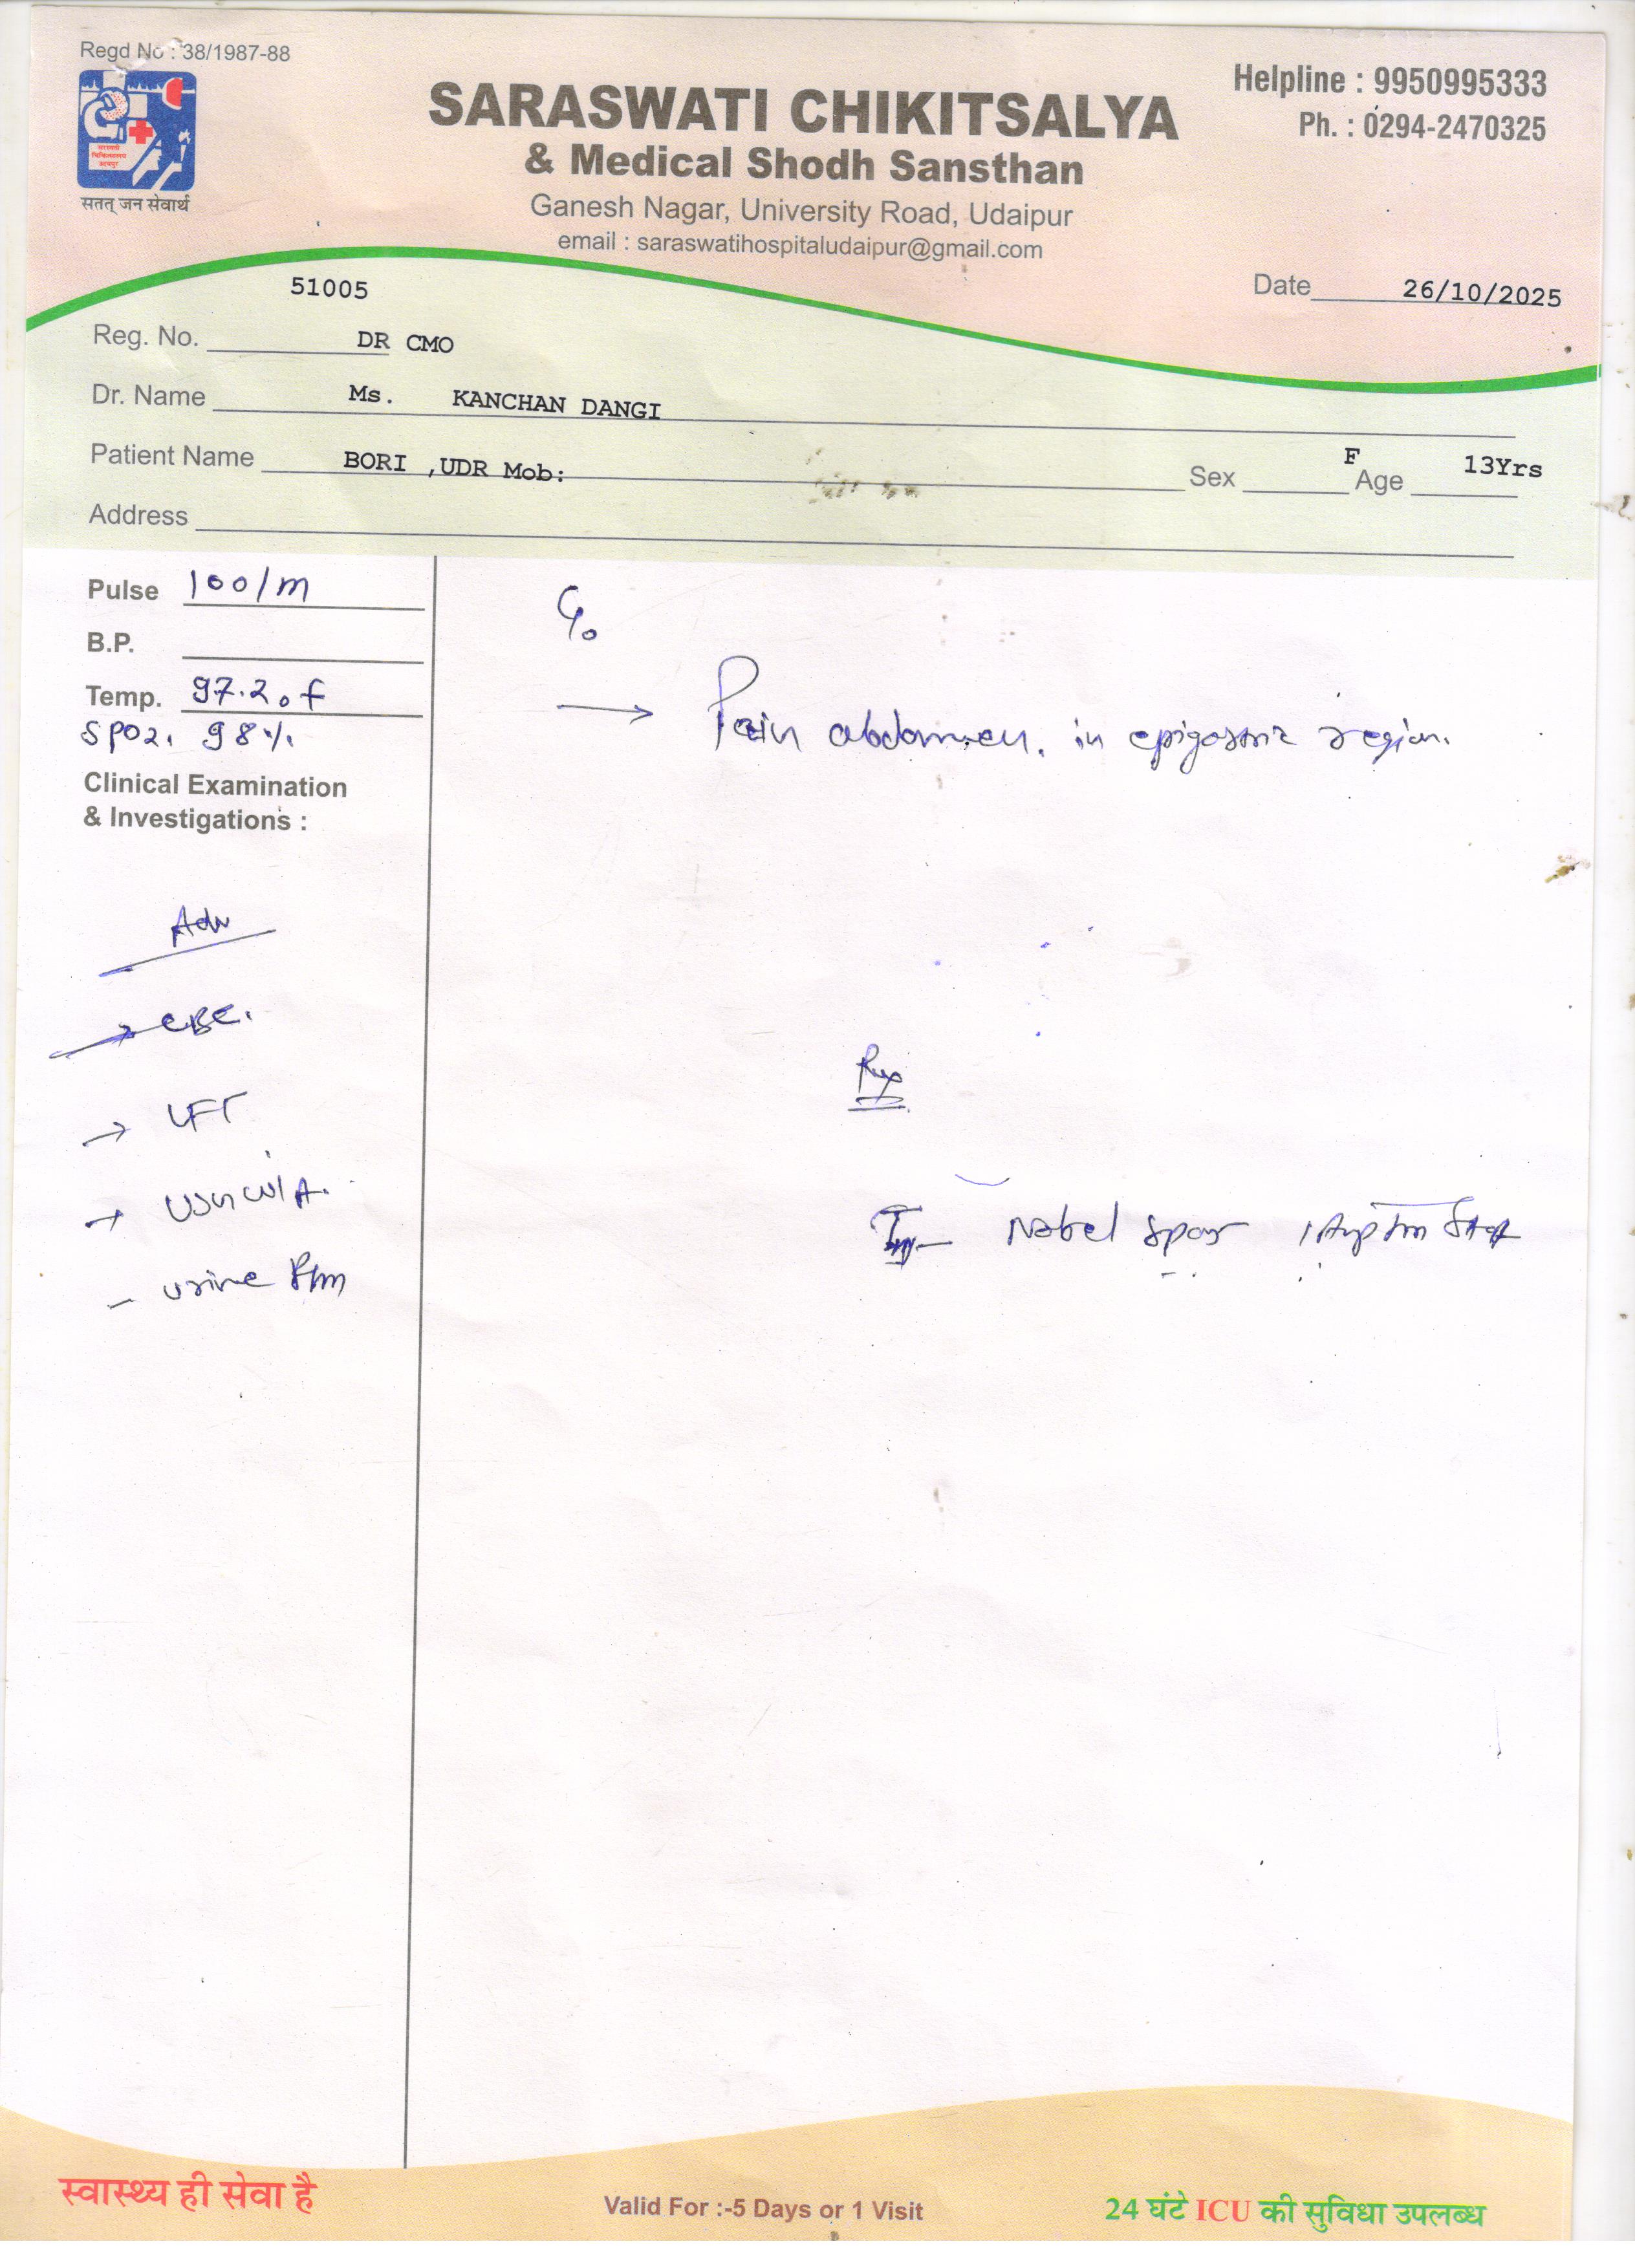 Regd No : 38/1987-88
SARASWATI CHIKITSALYA
& Medical Shodh Sansthan
Ganesh Nagar, University Road, Udaipur
email : saraswatihospitaludaipur@gmail.com
Helpline : 9950995333
Ph. : 0294-2470325
सरस्वती
चिकित्सालय
उदयपुर
सतत् जन सेवार्थ
Date 26/10/2025
51005
Reg. No. DR CMO
Dr. Name Ms. KANCHAN DANGI
Patient Name BORI ,UDR Mob: Sex F Age 13Yrs
Address
Pulse 100/m
B.P.
Temp. 97.2°f
SPO2. 98%
Clinical Examination
& Investigations :
Adv
→ CBC.
→ LFT
→ USG W/A.
- urine R/m
C/o
→ Pain abdomen. in epigastric region.
Rx
Inj- Nobel spas 1Amp Im Stat
स्वास्थ्य ही सेवा है
Valid For :-5 Days or 1 Visit
24 घंटे ICU की सुविधा उपलब्ध